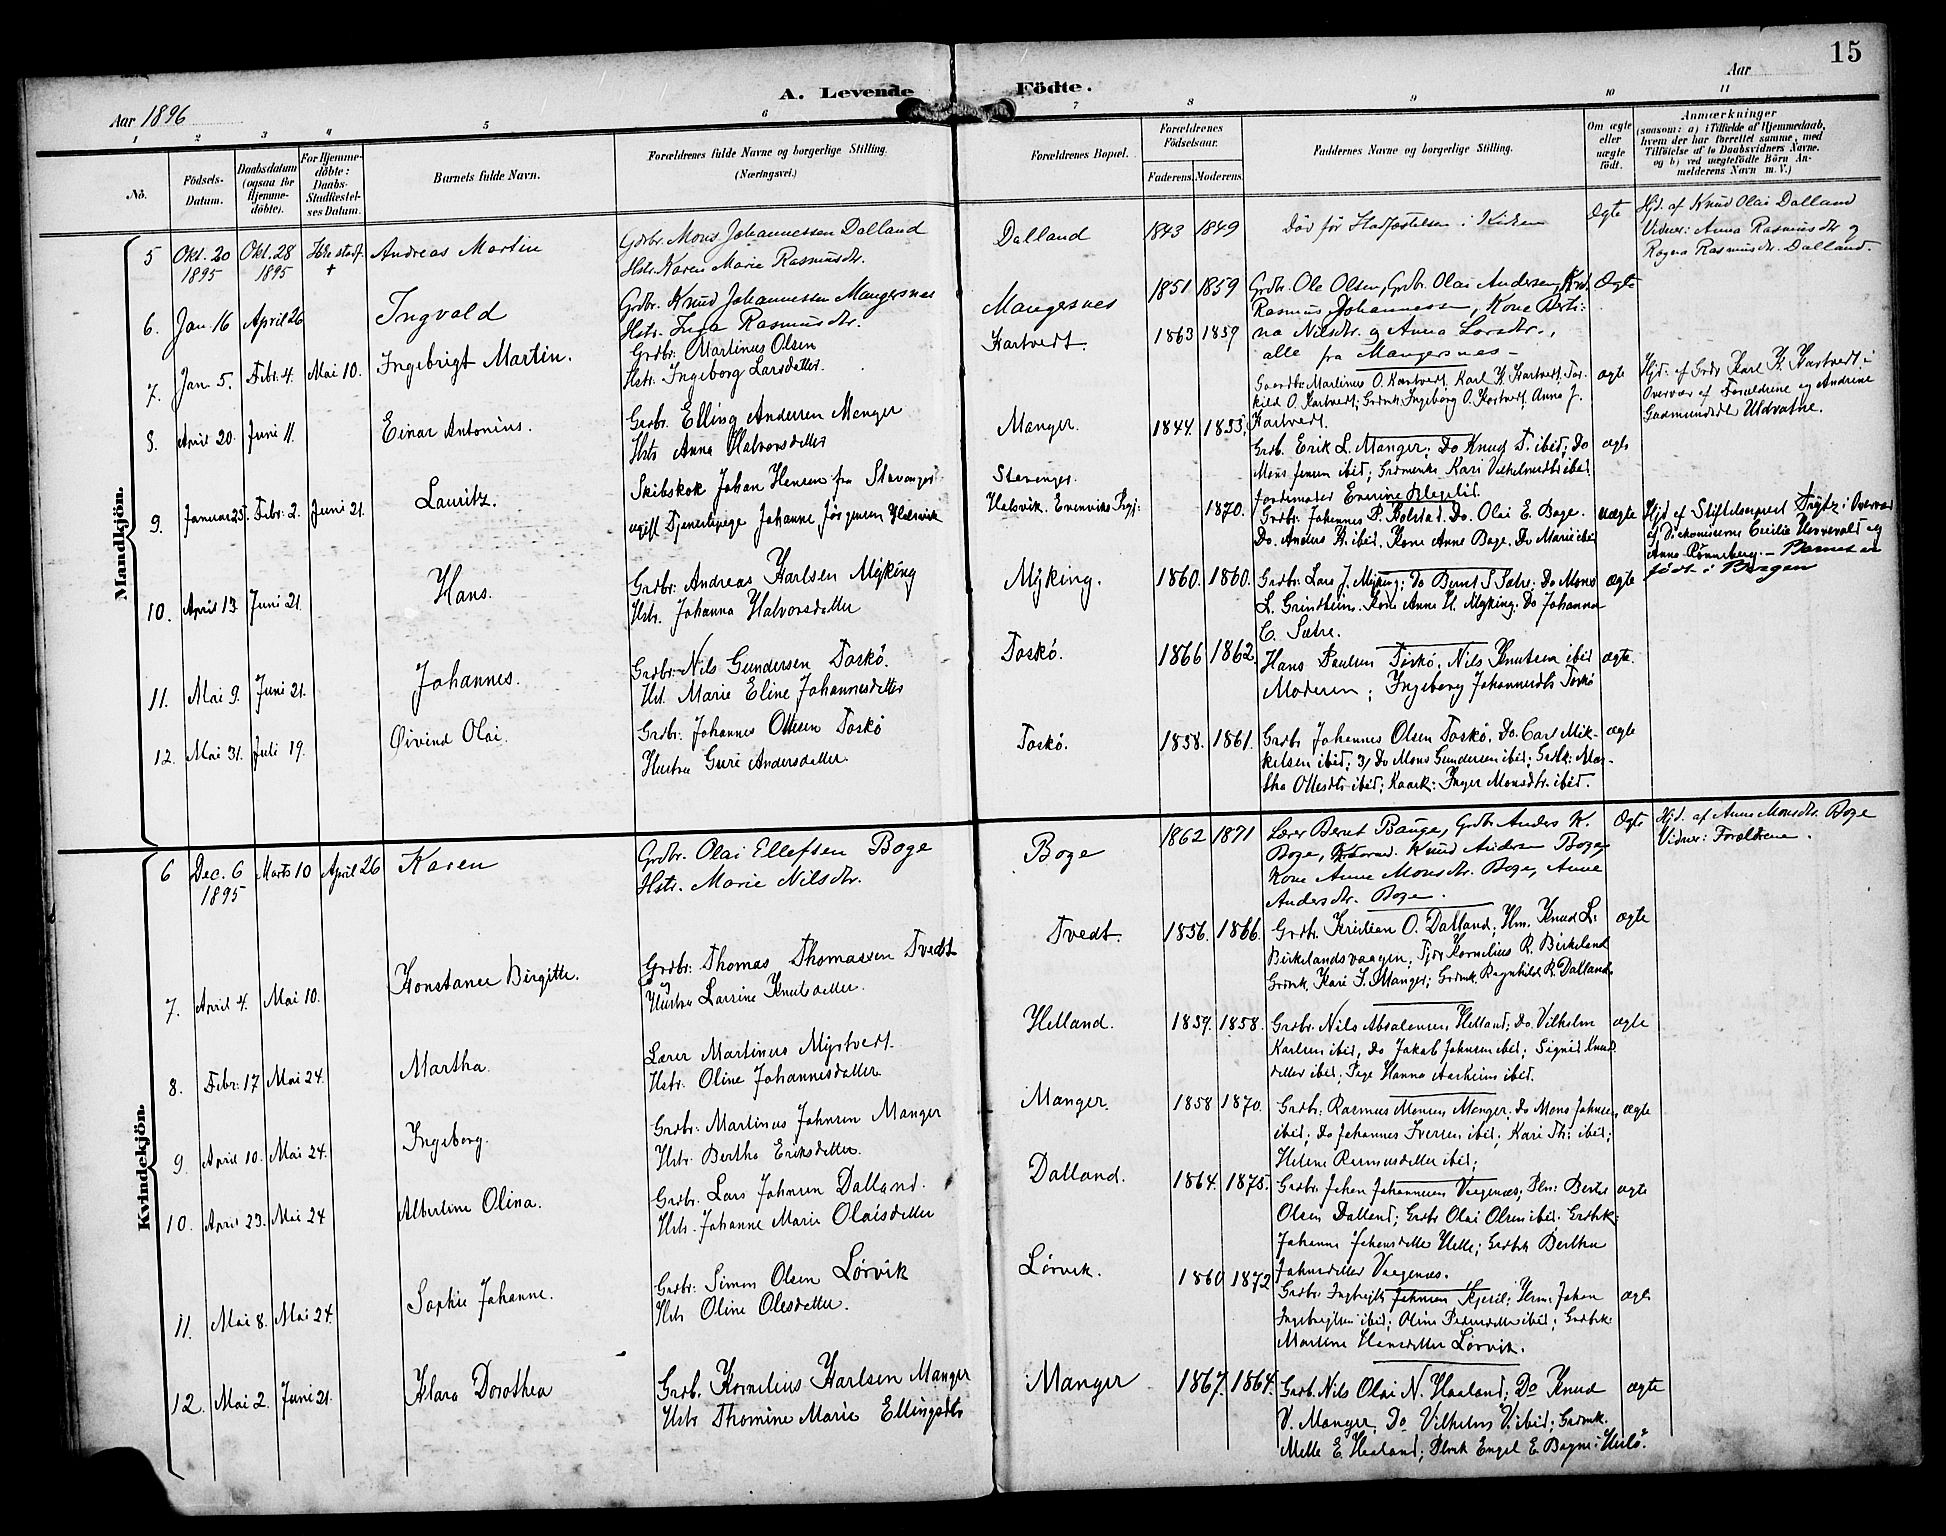 15
Aar
A. Levende Födte.
Aar 1896
1 2 3 4 5 6 7 8 9 10 11
No.
Födsels-Datum.
Daabsdatum (ogsaa for Hjemme-döbte).
For Hjemme-döbte: Daabs-Stadfæstel-ses Datum.
Barnets fulde Navn.
Forældrenes fulde Navne og borgerlige Stilling.
(Næringsvei.)
Forældrenes Bopæl.
Forældrenes Födselsaar.
Faderens. Moderens.
Faddernes Navne og borgerlige Stilling.
Om ægte eller uægte födt.
Anmærkninger
(saasom: a) i Tilfælde af Hjemmedaab, hvem der har forrettet samme, med Tilföielse af to Daabsvidners Navne. og b) ved uægtefödte Börn An-melderens Navn m. V.)
Mandkjön.
5 Okt. 20 1895 Okt. 28 1895 Andreas Martin
Grdbr. Mons Johannessen Dalland
Hstr. Karen Marie Rasmusdtr.
Dalland 1843 1849 Død før Stadfæstelsen i Kirken Ægte
Hjd. af Knud Olai Dalland
Vidner: Anna Rasmusdtr. og
Ragna Rasmusdtr. Dalland.
6. Jan. 16 April 26 Ingvald
Grdbr. Knud Johannessen Mangersnes
Hstr. Inga Rasmusdtr.
Mangersnes 1851 1859 Grdbr. Ole Olsen, Grdbr. Olai Andersen, Ægte
Rasmus Johannessen, Kone Berti-
na Nilsdtr. og Anna Larsdtr.,
alle fra Mangersnes
7. Jan. 5. Febr. 4. Mai 10. Ingebrigt Martin.
Grdbr. Martinus Olsen
Hstr. Ingeborg Larsdatter.
Kartvedt. 1863 1859
Gaardbr. Martinus O. Kartvedt, Karl K. Kartvedt, Tor- ægte
kild O. Kartvedt; Grdmk. Ingeborg O. Kartvedt, Anna J.
Kartvedt.
Hjd. af Grdbr. Karl K. Kartvedt i
Overvær af Forældrene og Andrine
Gudmundsdtr. Uldvathne.
8. April 20. Juni 11. Einar Antonius.
Grdbr. Elling Andersen Manger
Hstr. Anna Halvorsdatter
Manger. 1844. 1853.
Grdb. Erik L. Manger; Do Knud T. ibid; Do ægte
Mons Jensen ibid; Grdmenks Kari Vilhelmsdtr ibid
9. Januar 25. Febr. 2. Juni 21. Lauritz.
Skibskok Johan Hansen fra Stavanger
ugift Tjenestepige Johanne Jørgensen Halsvik
Stavanger.
Halsvik. Evenviks Prgj: 1870.
Grdbr. Johannes P. Bolstad. Do. Olai E. Boge. uægte
Do. Anders K. ibid. Kone Anne Boge. Do Marie ibid
Hjd af Stiftelsesprest Drytz i Overvær
af Diakonisserne Cecilie Versevald og
Anna Rønneberg. - Barnet er
født i Bergen
10. April 13. Juni 21. Hans.
Grdbr. Andreas Karlsen Myking
Hstr. Johanna Halvorsdatter
Myking. 1860. 1860. Grdbr. Lars J. Myking; Do Bernt S Sætre. Do Mons ægte
L. Grindheim. Kone Anne H. Myking. Do Johanna
C. Sætre.
11. Mai 9. Juni 21. Johannes.
Grdbr. Nils Gundersen Toskø.
Hst. Marie Eline Johannesdatter
Toskø. 1866 1862. Hans Paulsen Toskø, Nils Knutsen ibid ægte.
Moderen; Ingeborg Johannesdtr Toskø
12. Mai 31. Juli 19. Øivind Olai.
Grdbr. Johannes Ottesen Toskø
Hustru Guri Andersdatter.
Toskø. 1858. 1861. Grdbr Johannes Olsen Toskø. Do. Carl Mik- ægte
kelsen ibid; 3, Do Mons Gundersen ibid; Grdbk: Mar-
tha Ottesdtr ibid; Kaark: Inger Monsdtr. ibid.
Kvindekjön.
6 Dec. 6 1895 Marts 10 April 26 Karen
Grdbr. Olai Ellefsen Boge
Hstr. Marie Nilsdtr.
Boge 1862 1871 Lærer Bernt Bauge, Grdbr. Anders K. Ægte
Boge, Knud Andersen Boge,
Kone Anne Monsdtr. Boge, Anne
Andersdtr. Boge.
Hjd. af Anne Monsdtr. Boge
Vidner: Forældrene.
7. April 4. Mai 10. Konstance Birgitte.
Grdbr. Thomas Thomassen Tvedt
og Hustru Larsine Knutsdatter.
Tvedt. 1856. 1866. Grdbr. Kristian O. Dalland; Ugm. Knud L. ægte
Birkelandsvaagen; Tjdr Kornelius R. Birkeland
Grdmk. Kari I. Manger; Grdmk. Ragnhild R. Dalland.
8. Febr. 17 Mai 24. Martha.
Lærer Martinus Myrtvedt.
Hstr. Oline Johannesdatter
Helland. 1859. 1858. Grdbr. Nils Absalonsen Helland; Do. Vilhelm ægte
Karlsen ibid, Do Jakob Johnsen ibid; Signid Knuds-
datter ibid; Pige Hanna Aarheim ibid.
9. April 10. Mai 24. Ingeborg.
Grdbr. Martinus Johnsen Manger
Hstr. Bertha Eriksdatter.
Manger. 1858 1870. Grdbr. Rasmus Monsen Manger; Do Mons Johnsen, ægte
ibid; Do Johannes Iversen ibid; Kari Th: ibid;
Helene Rasmusdatter ibid;
10. April 23. Mai 24 Albertine Olina.
Grdbr. Lars Johnsen Dalland.
Hstr. Johanne Marie Olaisdatter
Dalland. 1864. 1875. Grdbr. Johan Johannesen Vaagenes; Olsen Dalland; Grdbr Olai Olsen ibid; Grdbrk: ægte
Johanna Johansdatter Helle; Grdbrk Bertha
Johnsdatter Vaagenes.
11. Mai 8. Mai 24. Sophie Johanne.
Grdbr: Simon Olsen Lørvik
Hstr Oline Olesdatter.
Lørvik. 1860 1872 Johan ægte
Ingebrigtsen ibid; Oline Pedersdatter ibid; Grdbrk.
Martine Hansdatter Lørvik.
12. Mai 2. Juni 21. Klara Dorothea
Grdb. Kornelius Karlsen Manger
Hstr Thomine Marie Ellingsdtr
Manger 1867. 1864. Grdb. Nils Olai N. Haaland; Do Knud ægte
V. Manger. Do Vilhelm V. ibid; Grdmk.
Melle E. Haaland; Engel E.